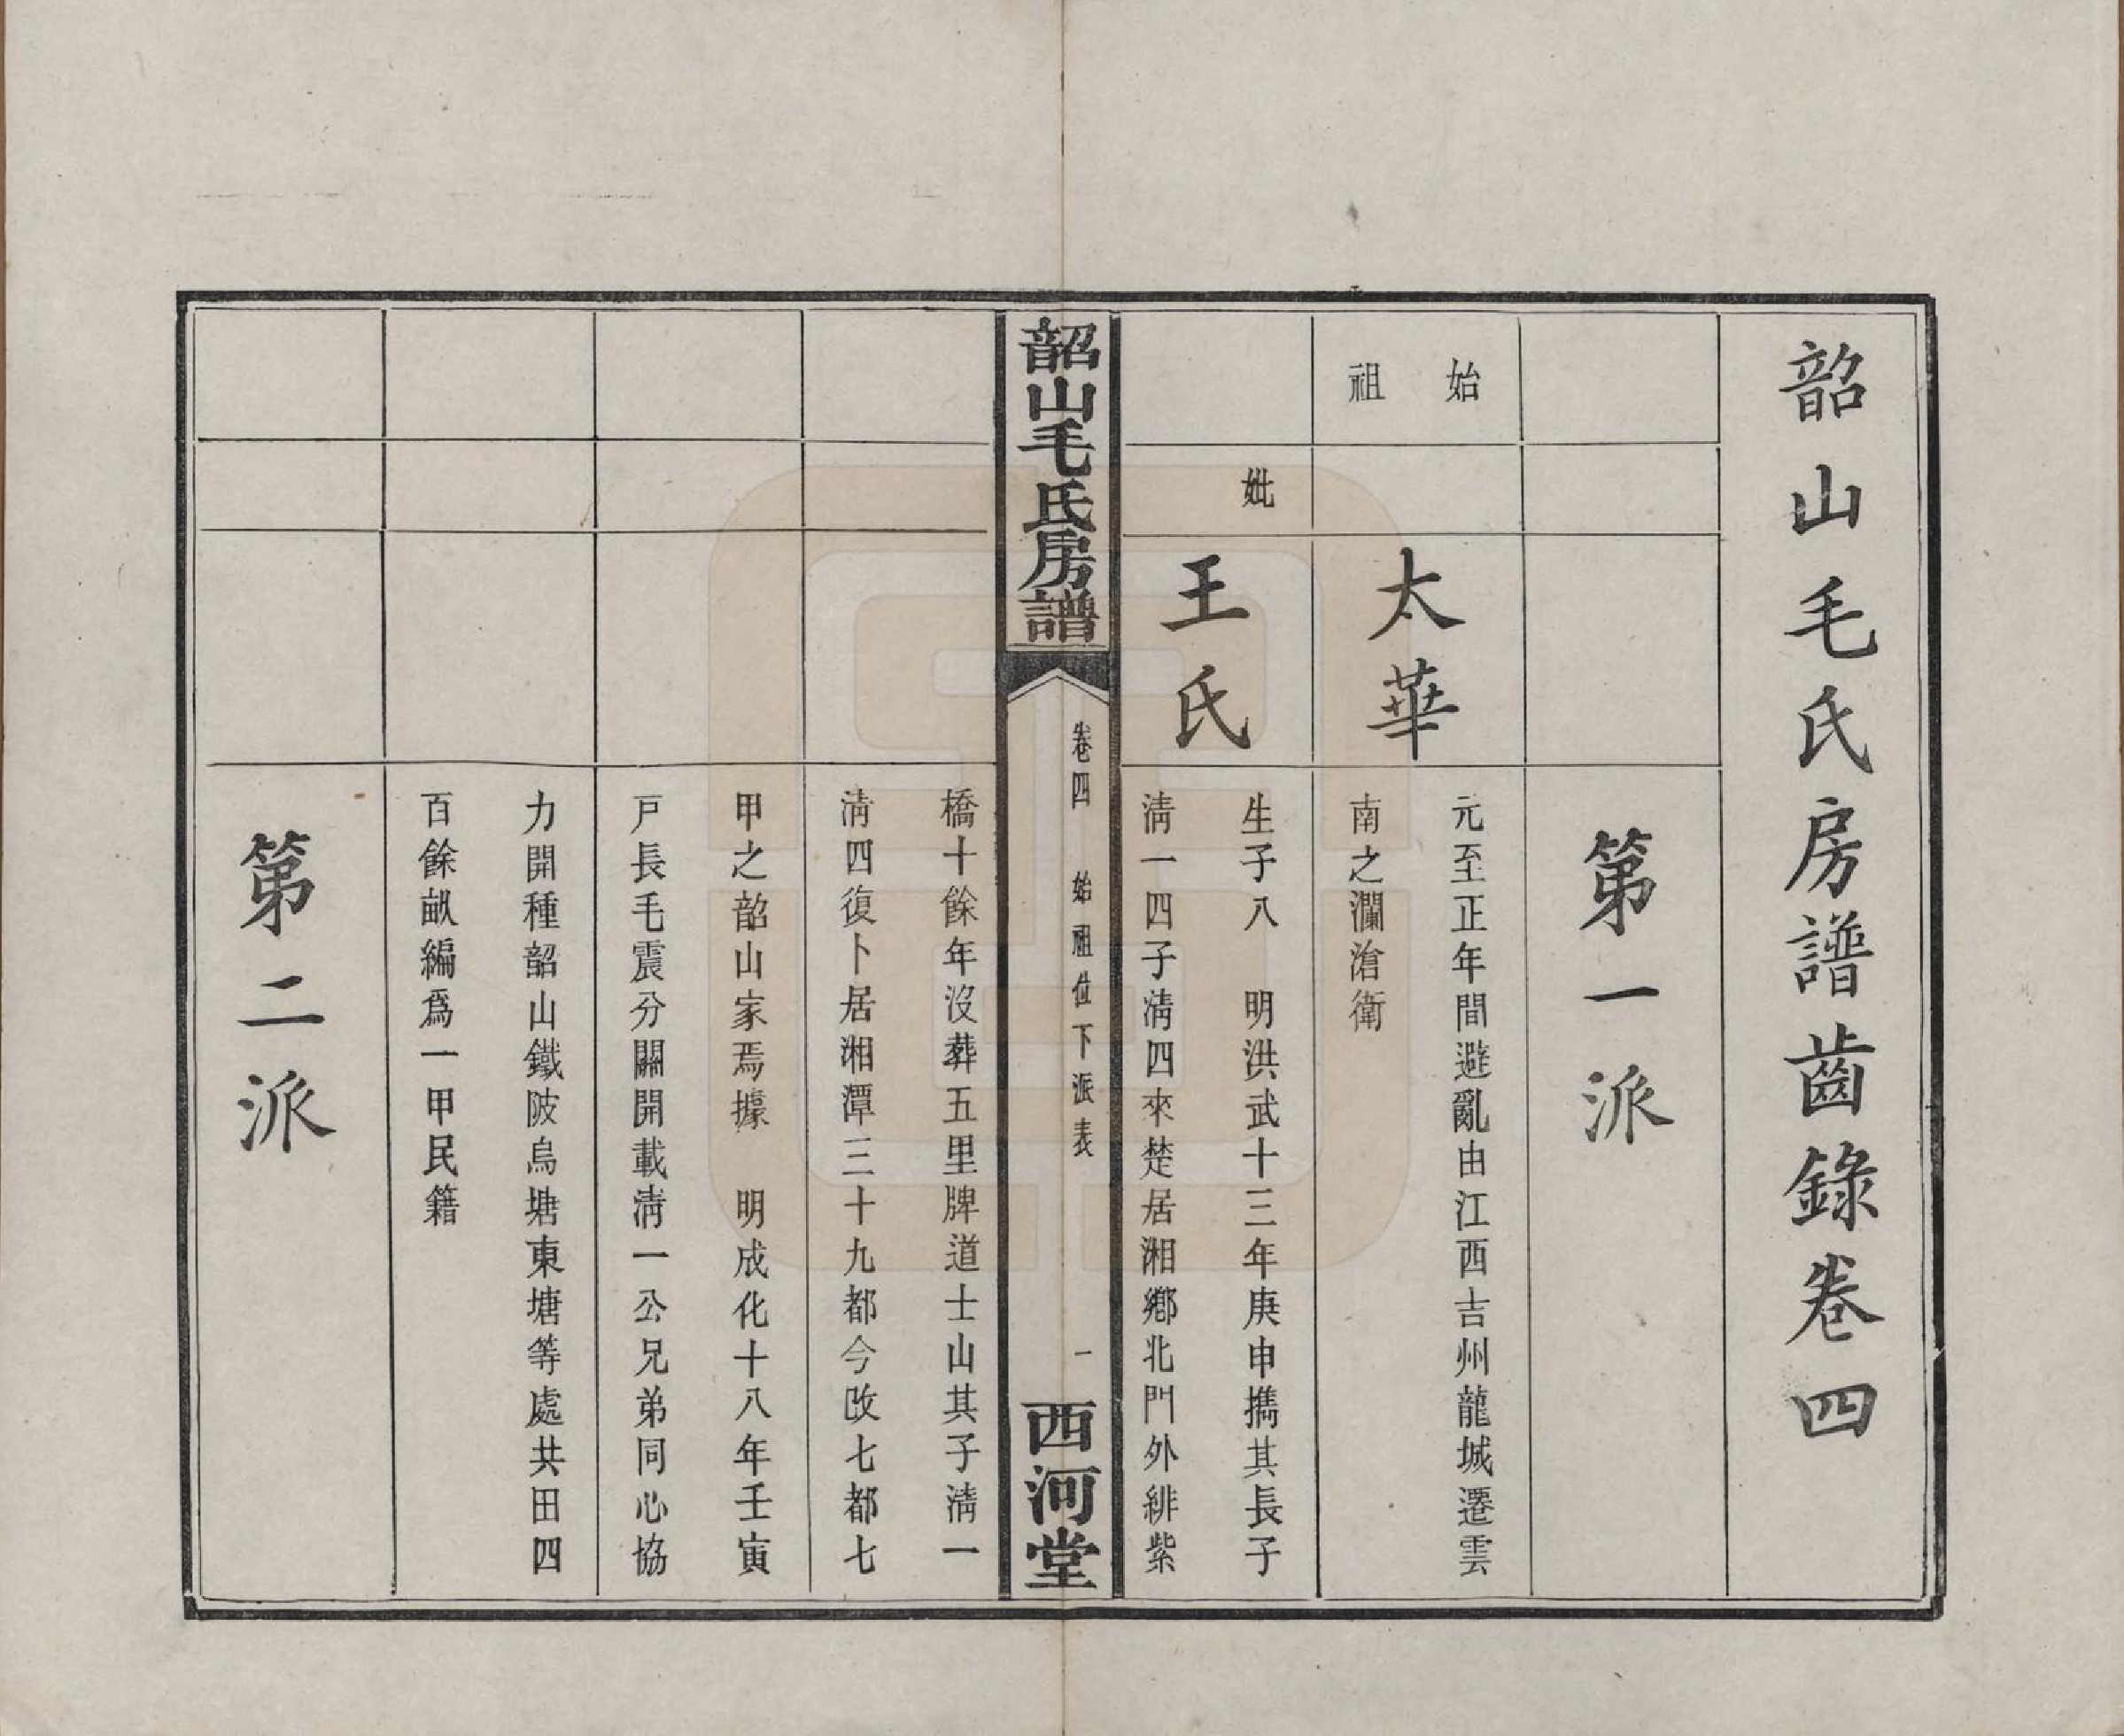 韶山毛氏房譜齒錄卷四
第一派
始
祖
太華
元至正年間避亂由江西吉州龍城遷雲
南之瀾滄衛
妣
王氏
生子八　明洪武十三年庚申擕其長子
淸一四子淸四來楚居湘鄕北門外緋紫
韶山毛氏房譜
卷四　始祖位下派表
一
西河堂
橋十餘年沒葬五里牌道士山其子淸一
淸四復卜居湘潭三十九都今改七都七
甲之韶山家焉據　明成化十八年壬寅
戸長毛震分關開載淸一公兄弟同心協
力開種韶山鐵陂烏塘東塘等處共田四
百餘畝編爲一甲民籍
第二派